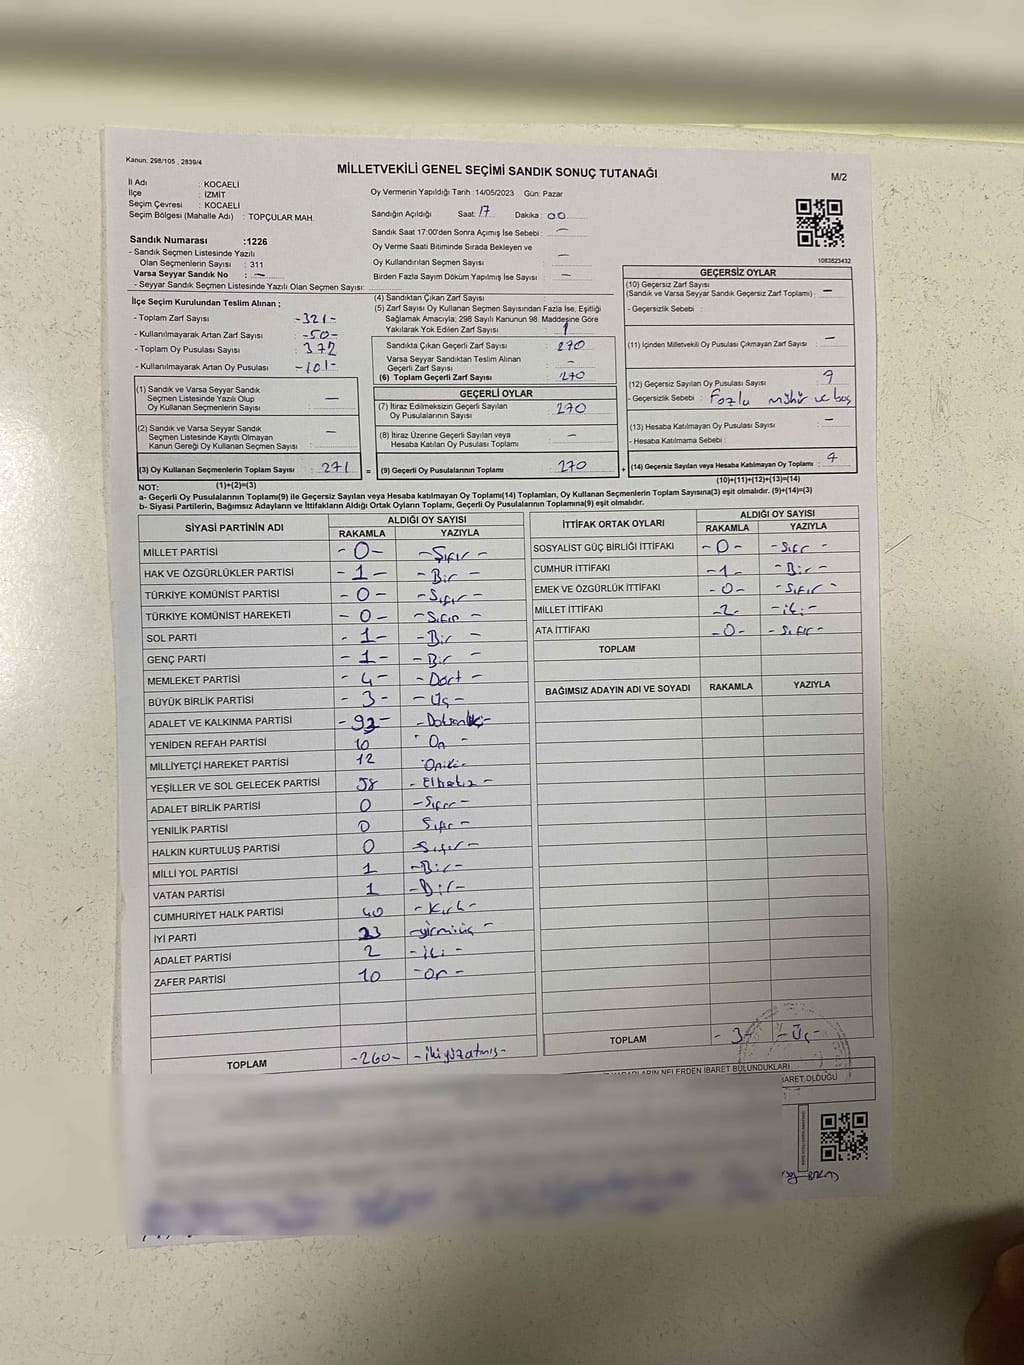 Kanun: 298/105 , 2839/4
MİLLETVEKİLİ GENEL SEÇİMİ SANDIK SONUÇ TUTANAĞI
M/2
İl Adı : KOCAELİ
İlçe : İZMİT
Seçim Çevresi : KOCAELİ
Seçim Bölgesi (Mahalle Adı) : TOPÇULAR MAH.
Oy Vermenin Yapıldığı Tarih :14/05/2023 Gün: Pazar
Sandığın Açıldığı Saat: 17 Dakika : 00
Sandık Saat 17:00'den Sonra Açımış İse Sebebi : -
Oy Verme Saati Bitiminde Sırada Bekleyen ve
Oy Kullandırılan Seçmen Sayısı : -
Birden Fazla Sayım Döküm Yapılmış İse Sayısı : -
Sandık Numarası :1226
- Sandık Seçmen Listesinde Yazılı
Olan Seçmenlerin Sayısı : 311
Varsa Seyyar Sandık No : -
- Seyyar Sandık Seçmen Listesinde Yazılı Olan Seçmen Sayısı:
İlçe Seçim Kurulundan Teslim Alınan ;
- Toplam Zarf Sayısı : -321-
- Kullanılmayarak Artan Zarf Sayısı : -50-
- Toplam Oy Pusulası Sayısı : 372
- Kullanılmayarak Artan Oy Pusulası : -101-
(1) Sandık ve Varsa Seyyar Sandık
Seçmen Listesinde Yazılı Olup
Oy Kullanan Seçmenlerin Sayısı : -
(2) Sandık ve Varsa Seyyar Sandık
Seçmen Listesinde Kayıtlı Olmayan
Kanun Gereği Oy Kullanan Seçmen Sayısı : -
(3) Oy Kullanan Seçmenlerin Toplam Sayısı : 271 =
(4) Sandıktan Çıkan Zarf Sayısı :
(5) Zarf Sayısı Oy Kullanan Seçmen Sayısından Fazla İse, Eşitliği
Sağlamak Amacıyla; 298 Sayılı Kanunun 98. Maddesine Göre
Yakılarak Yok Edilen Zarf Sayısı : 1
Sandıkta Çıkan Geçerli Zarf Sayısı : 270
Varsa Seyyar Sandıktan Teslim Alınan
Geçerli Zarf Sayısı : -
(6) Toplam Geçerli Zarf Sayısı : 270
GEÇERLİ OYLAR
(7) İtiraz Edilmeksizin Geçerli Sayılan
Oy Pusulalarının Sayısı : 270
(8) İtiraz Üzerine Geçerli Sayılan veya
Hesaba Katılan Oy Pusulası Toplamı : -
(9) Geçerli Oy Pusulalarının Toplamı : 270 +
1083823432
GEÇERSİZ OYLAR
(10) Geçersiz Zarf Sayısı
(Sandık ve Varsa Seyyar Sandık Geçersiz Zarf Toplamı) : -
- Geçersizlik Sebebi :
(11) İçinden Milletvekili Oy Pusulası Çıkmayan Zarf Sayısı : -
(12) Geçersiz Sayılan Oy Pusulası Sayısı :
- Geçersizlik Sebebi : Fazla mühür ve boş
(13) Hesaba Katılmayan Oy Pusulası Sayısı : -
- Hesaba Katılmama Sebebi :
(14) Geçersiz Sayılan veya Hesaba Katılmayan Oy Toplamı :
(10)+(11)+(12)+(13)=(14)
NOT: (1)+(2)=(3)
a- Geçerli Oy Pusulalarının Toplamı(9) ile Geçersiz Sayılan veya Hesaba katılmayan Oy Toplamı(14) Toplamları, Oy Kullanan Seçmenlerin Toplam Sayısına(3) eşit olmalıdır. (9)+(14)=(3)
b- Siyasi Partilerin, Bağımsız Adayların ve İttifakların Aldığı Ortak Oyların Toplamı, Geçerli Oy Pusulalarının Toplamına(9) eşit olmalıdır.
SİYASİ PARTİNİN ADI ALDIĞI OY SAYISI
RAKAMLA YAZIYLA
MİLLET PARTİSİ -0- -Sıfır-
HAK VE ÖZGÜRLÜKLER PARTİSİ -1- -Bir-
TÜRKİYE KOMÜNİST PARTİSİ -0- -Sıfır-
TÜRKİYE KOMÜNİST HAREKETİ -0- -Sıfır-
SOL PARTİ -1- -Bir-
GENÇ PARTİ -1- -Bir-
MEMLEKET PARTİSİ -4- -Dört-
BÜYÜK BİRLİK PARTİSİ -3- -Üç-
ADALET VE KALKINMA PARTİSİ -92- -Doksaniki-
YENİDEN REFAH PARTİSİ 10 On -
MİLLİYETÇİ HAREKET PARTİSİ 12 Oniki
YEŞİLLER VE SOL GELECEK PARTİSİ 58 - Ellisekiz -
ADALET BİRLİK PARTİSİ 0 -Sıfır-
YENİLİK PARTİSİ 0 Sıfır -
HALKIN KURTULUŞ PARTİSİ 0 -Sıfır-
MİLLİ YOL PARTİSİ 1 -Bir-
VATAN PARTİSİ 1 -Bir-
CUMHURİYET HALK PARTİSİ 40 -Kırk-
İYİ PARTİ 23 -yirmiüç-
ADALET PARTİSİ 2 -iki-
ZAFER PARTİSİ 10 -On-
TOPLAM -260- -ikiyüzatmış-
İTTİFAK ORTAK OYLARI ALDIĞI OY SAYISI
RAKAMLA YAZIYLA
SOSYALİST GÜÇ BİRLİĞİ İTTİFAKI -0- -Sıfır-
CUMHUR İTTİFAKI -1- -Bir-
EMEK VE ÖZGÜRLÜK İTTİFAKI -0- -Sıfır-
MİLLET İTTİFAKI -2- -iki-
ATA İTTİFAKI -0- -Sıfır-
TOPLAM
BAĞIMSIZ ADAYIN ADI VE SOYADI RAKAMLA YAZIYLA
TOPLAM -3- -Üç-
NELERDEN İBARET BULUNDUKLARI
İBARET OLDUĞU